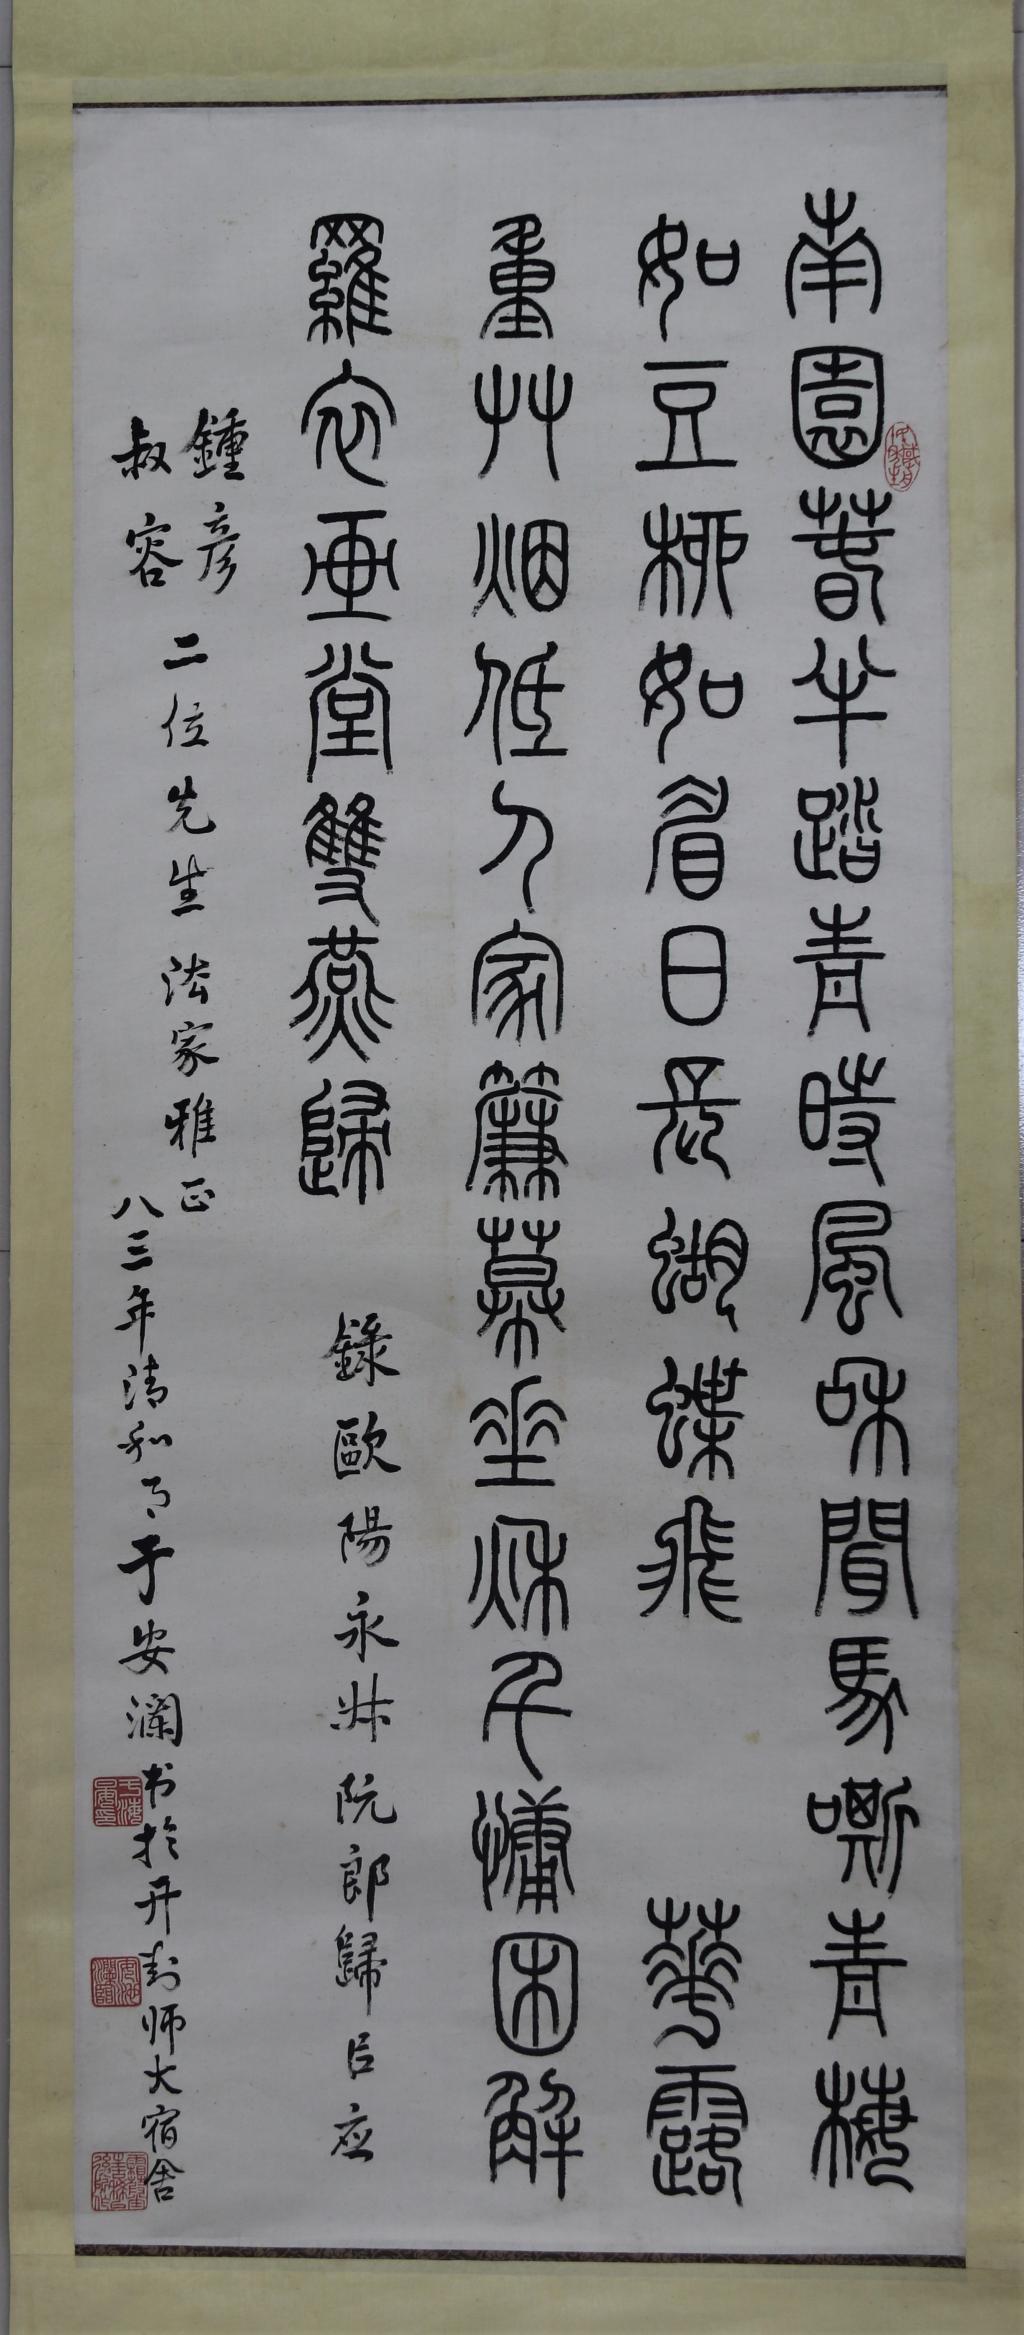 南園萅半踏青時風咊聞馬嘶青梅
如豆柳如眉日長蝴蝶飛 華露
重艸烟低人家簾幕垂秋千慵困解
羅衣画堂雙燕歸
錄歐陽永叔阮郎歸呂应
鍾彦
叔容
二位先生法家雅正
八三年清和月于安瀾书於开封师大宿舍